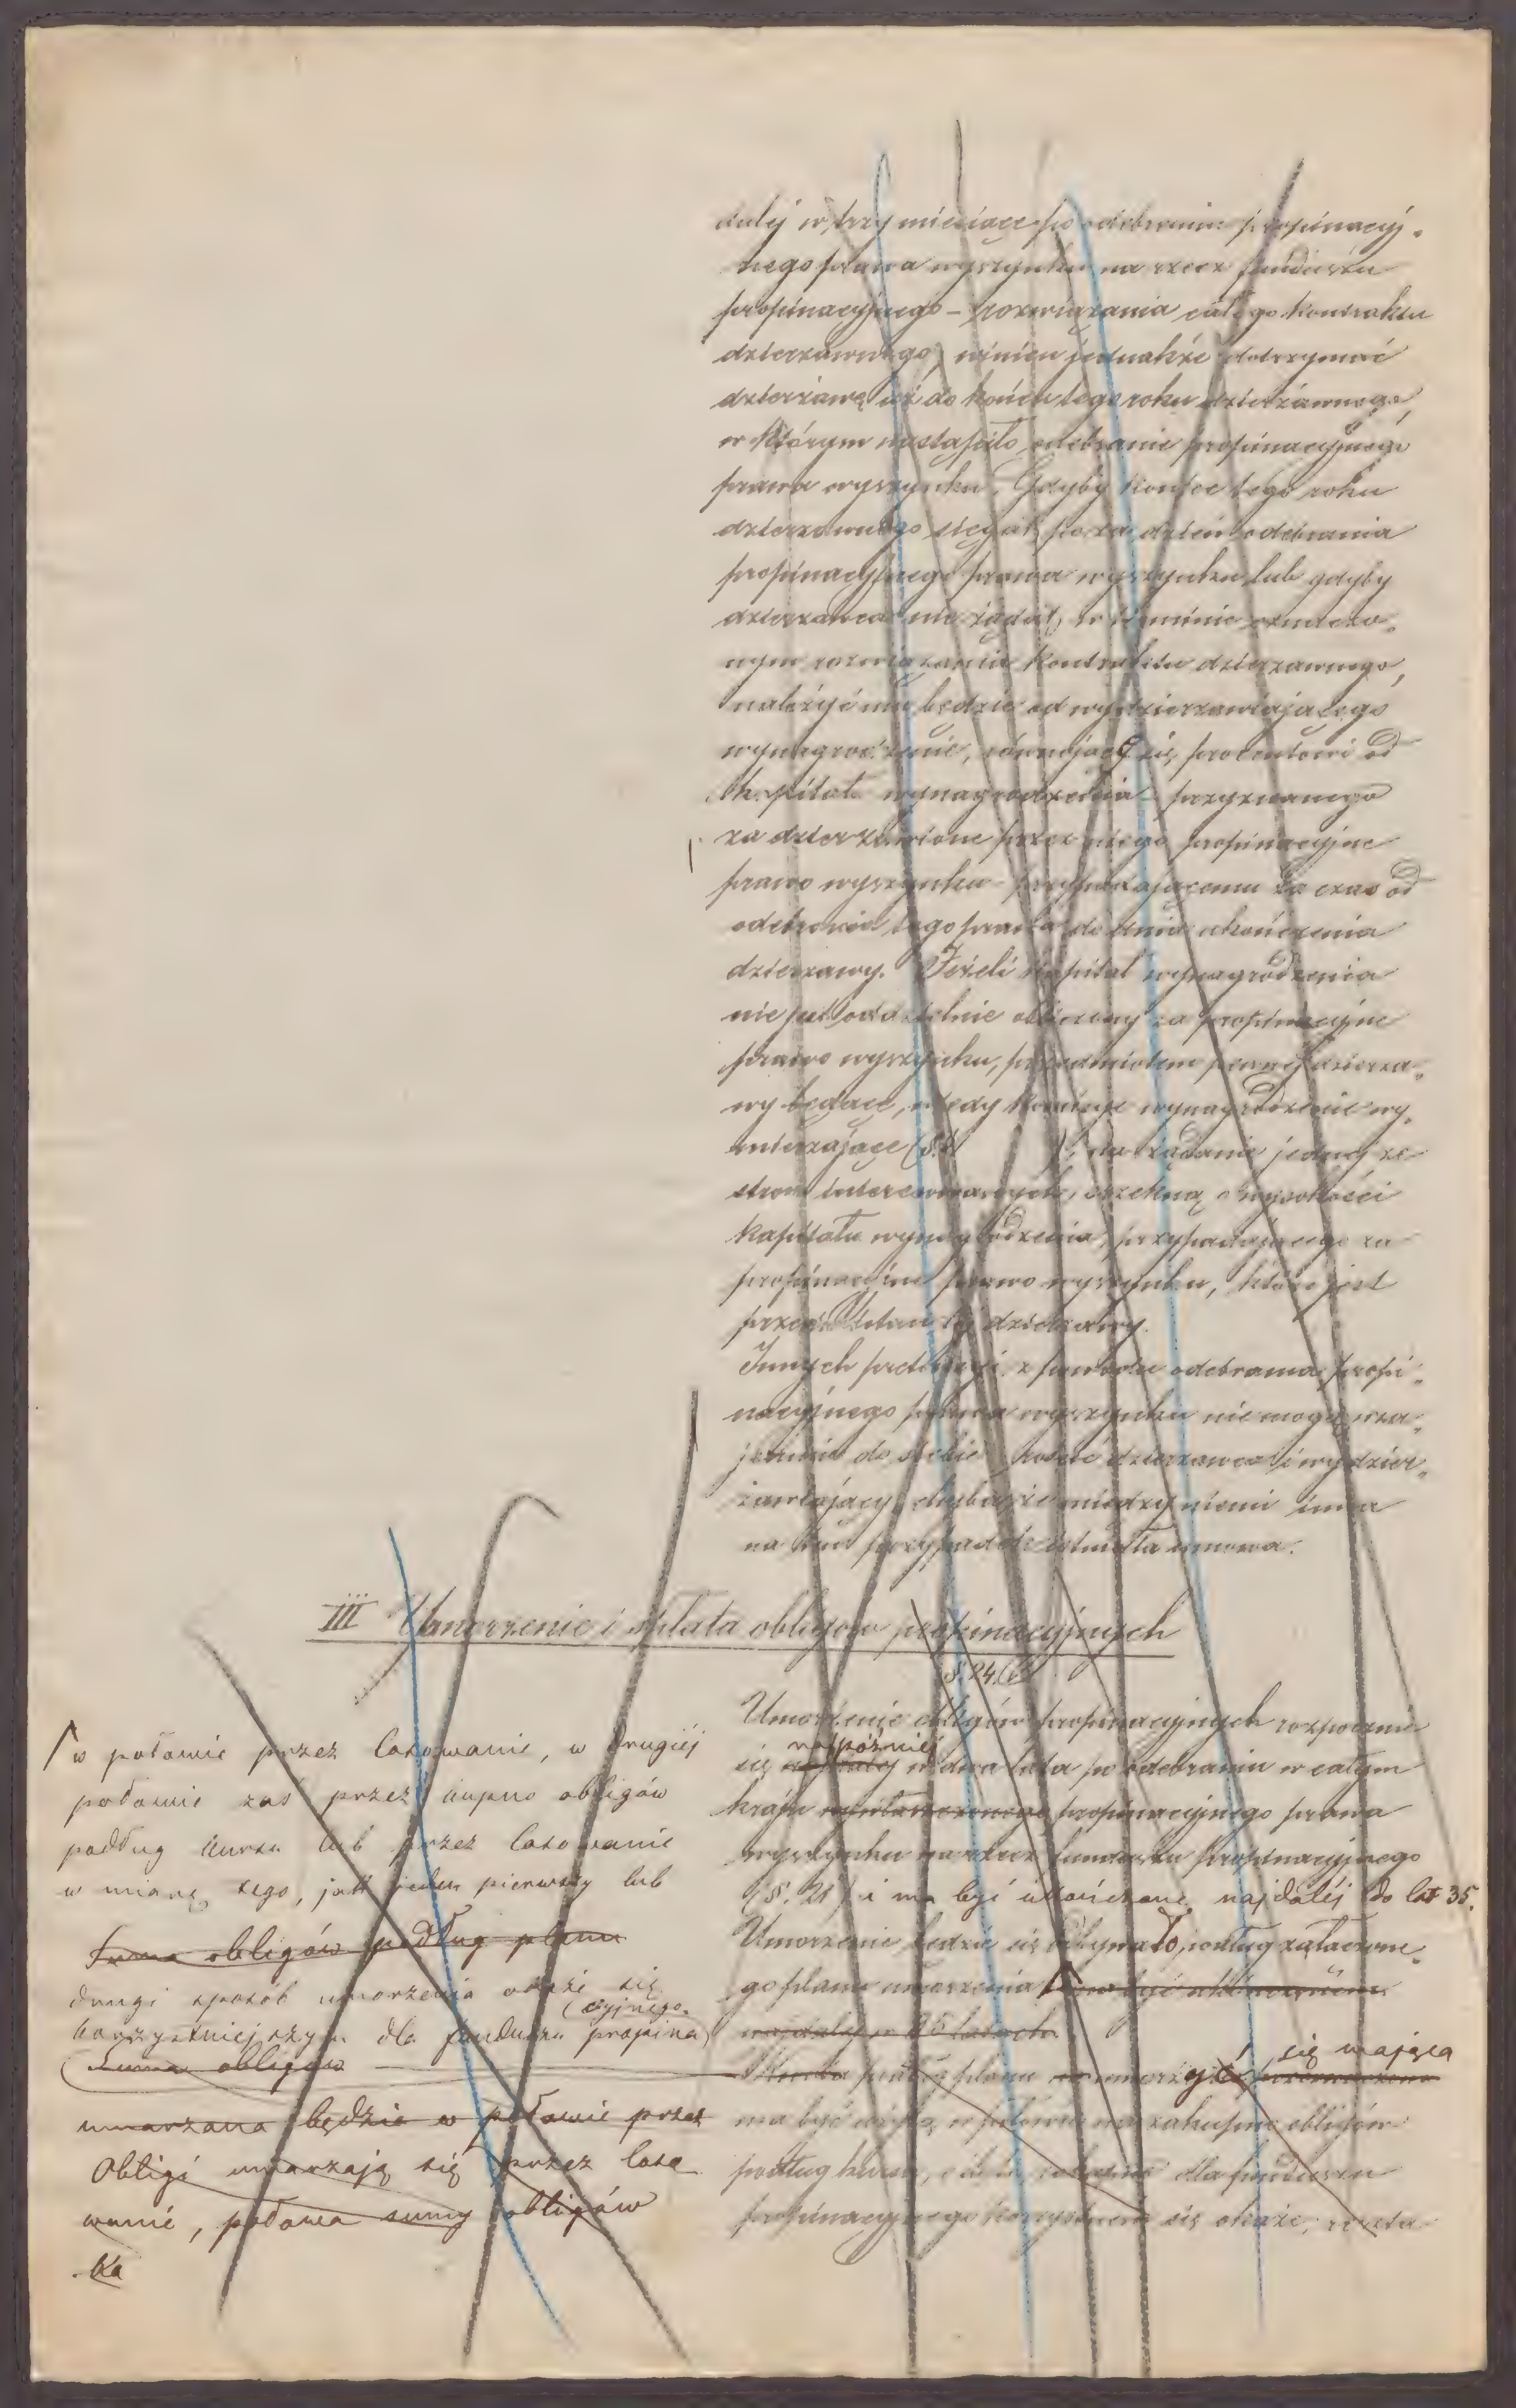 dalej w trzy miesiące po odebraniu propinacyj-
nego prawa wyszynku na rzecz funduszu
propinacyjnego – rozwiązania całego kontraktu
dzierzawnego, winien jednakże dotrzymać
dzierzawę aż do końca tego roku dzierzawnego,
w którym nastąpiło odebranie propinacyjnego
prawa wyszynku. Gdyby koniec tego roku
dzierzawnego sięgał poza dzień odebrania
propinacyjnego prawa wyszynku lub gdyby
dzierzawca nie żądał w terminie oznaczo-
nym rozwiązania kontraktu dzierzawnego,
należyć mu będzie od wydzierzawiającego
wynagrodzenie, równające się procentowi od
kapitału wynagrodzenia przyznanego
za dzierzawione przez niego propinacyjne
prawo wyszynku przypadającemu za czas od
odebrania tego prawa do dnia ukończenia
dzierzawy. Jeżeli kapitał wynagrodzenia
nie jest oddzielnie obliczony za propinacyjne
prawo wyszynku, przedmiotem pewnej dzierza-
wy będące, wtedy komisye wynagrodzenie wy-
mierzające (§. ) na żądanie jednej ze
stron interesowanych, orzekną o wysokości
kapitału wynagrodzenia, przypadającego za
propinacyjne prawo wyszynku, które jest
przedmiotem tej dzierzawy.
Innych pretensyi z powodu odebrania propi-
nacyjnego prawa wyszynku nie mogą wza-
jemnie do siebie rościć dzierzawca i wydzier-
żawiający, chyba że między niemi inna
na ten przypadek istniała umowa.
III Umorzenie i spłata obligów propinacyjnych
§. 24.
Umorzenie obligów propinacyjnych rozpocznie
najpóźniej
się najdalej w dwa lata po odebraniu w całym
kraju propinacyjnego prawa
wyszynku na rzecz funduszu propinacyjnego
(§. 21) i ma być ukończone najdalej do lat 35.
Umorzenie będzie się odbywało, podług załączone-
go planu umorzenia i ma być ukończonem
najdalej w 35 latach.
się mająca
Kwota podług planu umorzyć
ma być użytą w połowie na zakupno obligów
podług kursu, o ile to dla funduszu
propinacyjnego korzystnem się okaże; reszta
w połowie przez losowanie, w drugiéj
połowie zaś przez kupno obligów
podług kursu lub przez losowanie
w miarę tego, jak jeden pierwszy lub
Suma obligów podług planu
drugi sposób umorzenia okaże się
korzystniejszym dla funduszu propina
cyjnego.
Suma obligów
umarzana będzie w połowie przez
Obligi umarzają się przez loso
wanie, połowa sumy obligów
ka